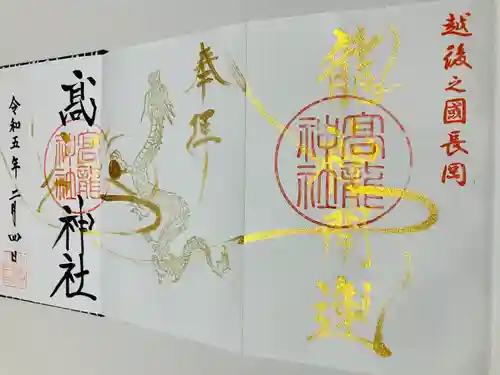 越後之國長岡
龍神開運
高龍神社
奉拝
髙 神社
高龍神社
令和五年二月四日